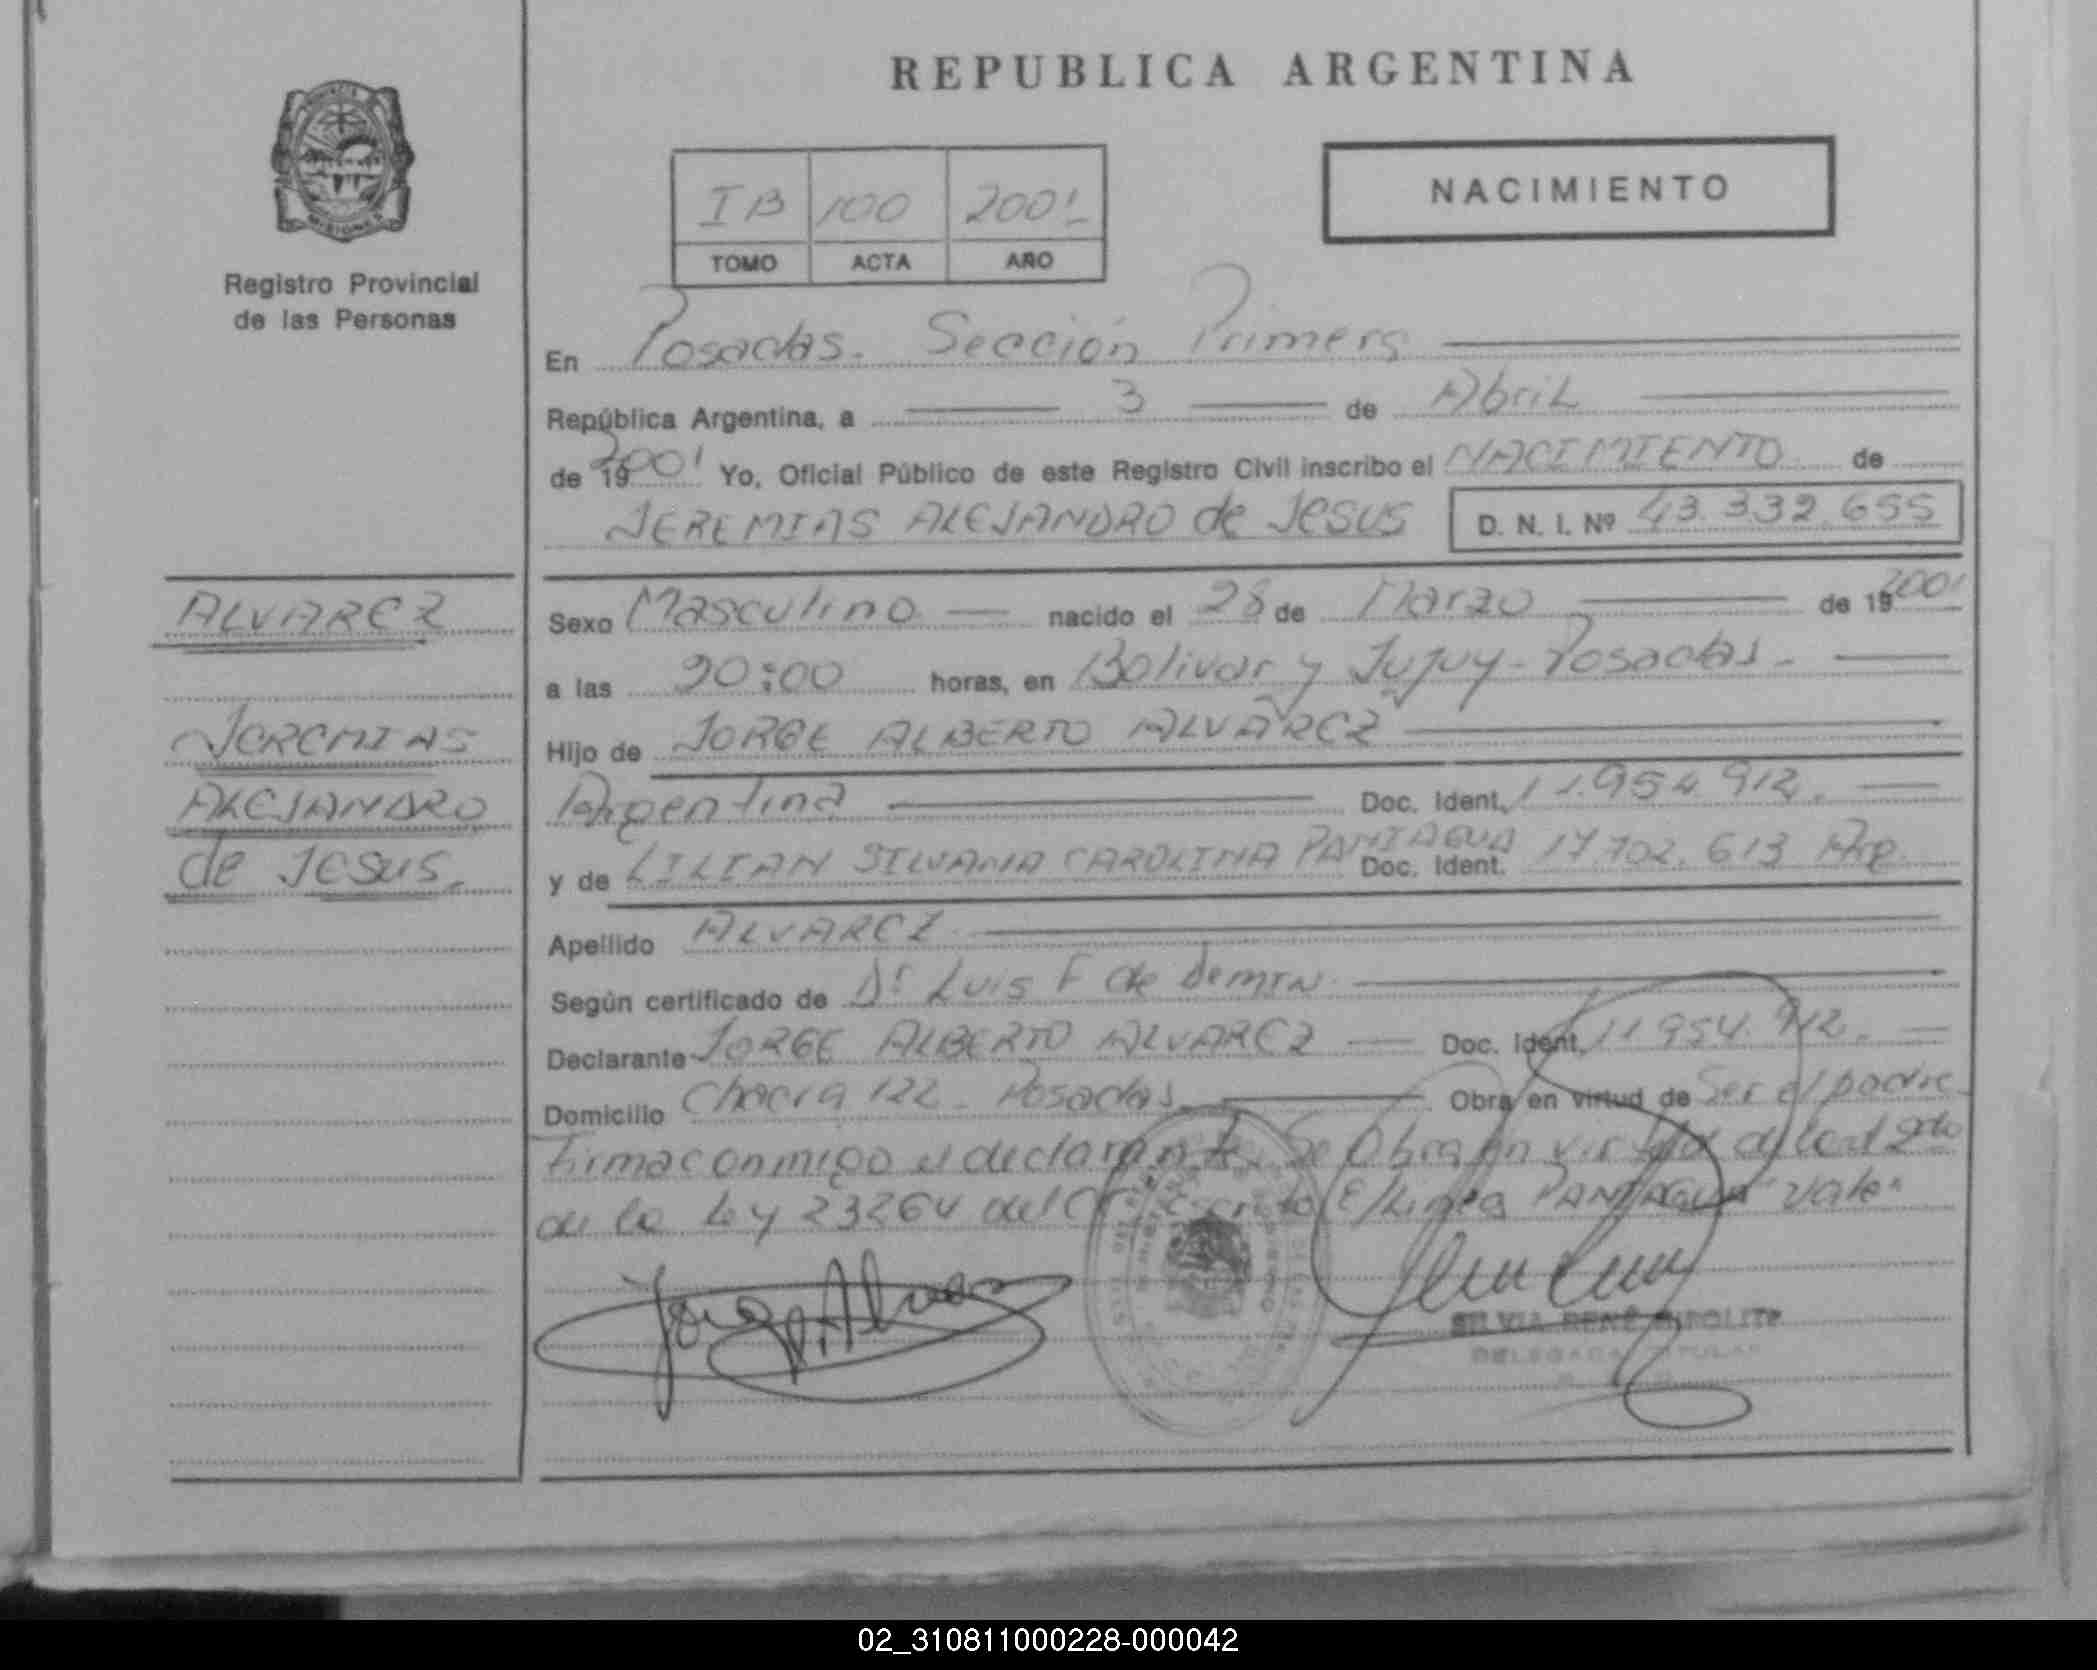 REPUBLICA ARGENTINA
PROVINCIA DE
MISIONES
Registro Provincial
de las Personas
IB 100 2001
TOMO ACTA AÑO
NACIMIENTO
En Posadas. Sección Primera
República Argentina, a 3 de Abril
de 19 2001 Yo, Oficial Público de este Registro Civil inscribo el NACIMIENTO de
JEREMIAS ALEJANDRO de Jesus D. N. I. Nº 43.332.655
ALVAREZ
JEREMIAS
ALEJANDRO
de Jesus.
Sexo Masculino nacido el 28 de Marzo de 19 2001
a las 20:00 horas, en Bolivar y Jujuy - Posadas.
Hijo de JORGE ALBERTO ALVAREZ
Argentina Doc. Ident. 11.954.912.
y de LILIAN SILVANA CAROLINA PANIAGUA Doc. Ident. 17.702.613 Arg.
Apellido ALVAREZ
Según certificado de Dr Luis F de
Declarante JORGE ALBERTO ALVAREZ Doc. Ident. 11.954.912.
Domicilio Chacra 122 - Posadas Obra en virtud de Ser el padre
Firma conmigo el declarante. Se Obra en virtud del art 2do
de la Ley 23264 del E/Linea PANIAGUA "Vale"
Jorge A. Alvarez
SILVIA RENÉ HIPOLITA
DELEGADA TITULAR
02_310811000228-000042